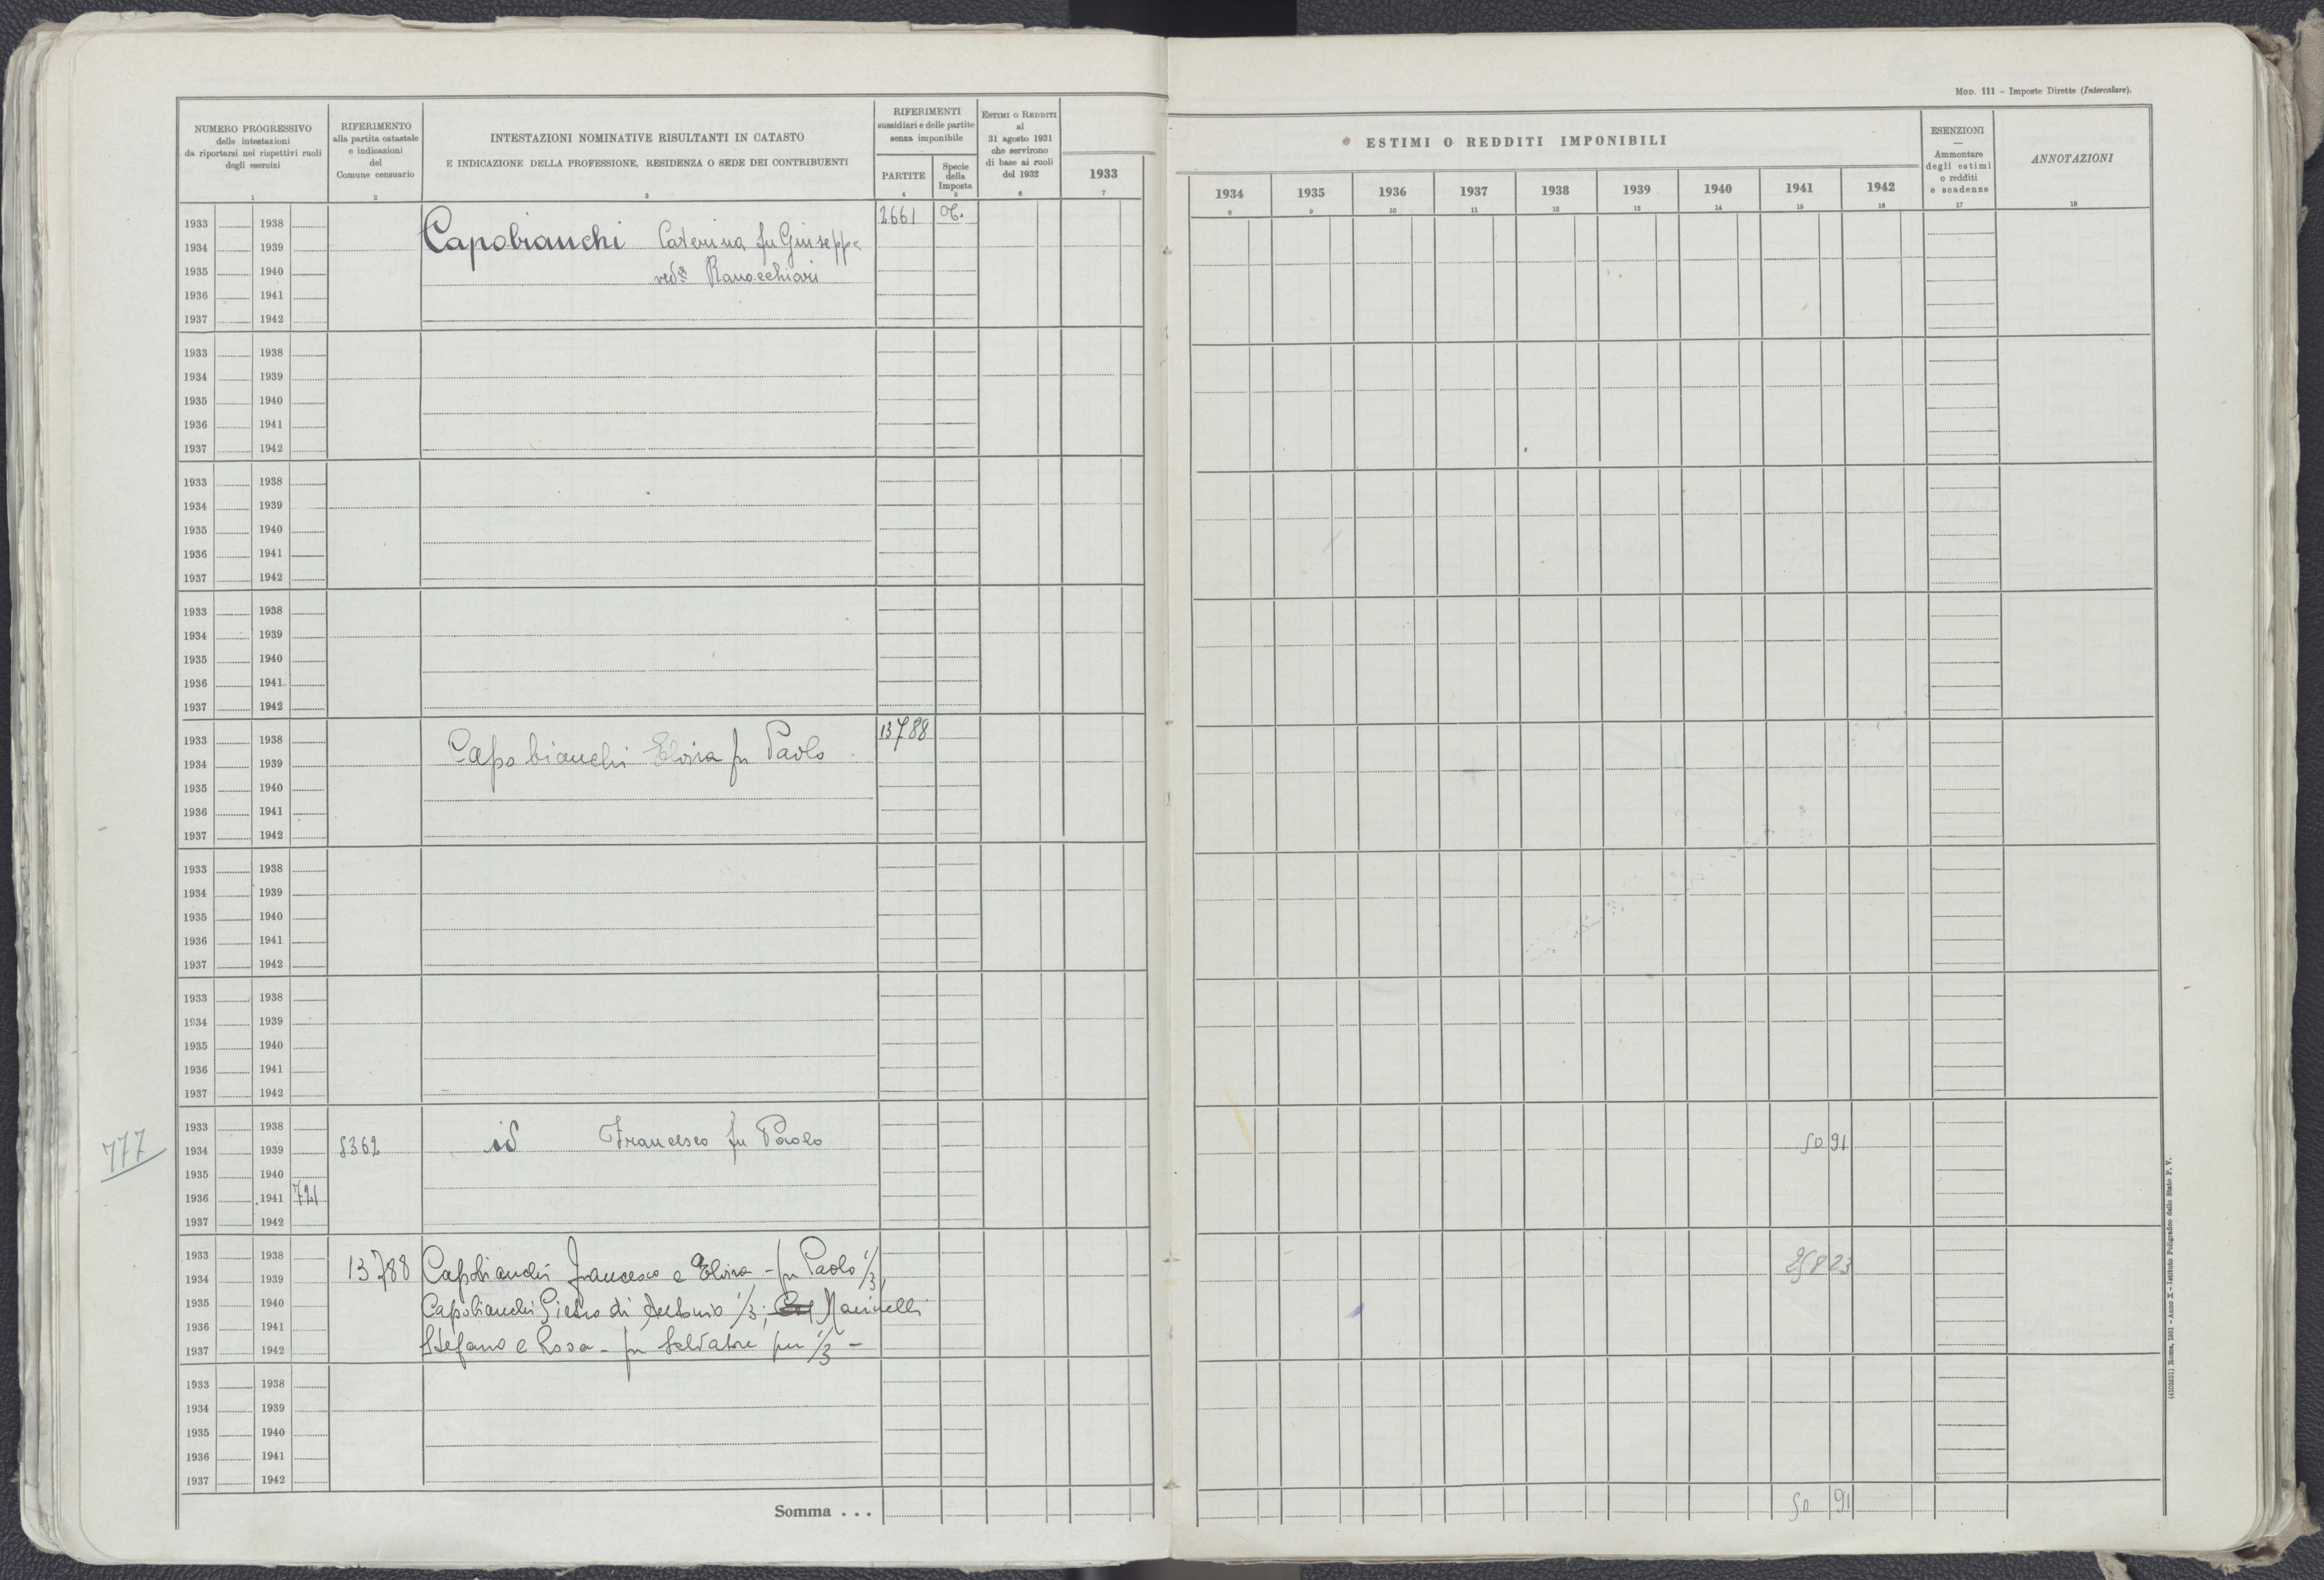 MOD. 111 - Imposte Dirette (Intercalare).
NUMERO PROGRESSIVO
delle intestazioni
da riportarsi nei rispettivi ruoli
degli esercizi
1
RIFERIMENTO
alla partita catastale
e indicazioni
del
Comune censuario
2
INTESTAZIONI NOMINATIVE RISULTANTI IN CATASTO
E INDICAZIONE DELLA PROFESSIONE, RESIDENZA O SEDE DEI CONTRIBUENTI
3
RIFERIMENTI
sussidiari e delle partite
senza imponibile
PARTITE
4
Specie
della
Imposta
5
ESTIMI O REDDITI
al
31 agosto 1931
che servirono
di base ai ruoli
del 1932
6
1933
7
ESTIMI O REDDITI IMPONIBILI
1934 1935 1936 1937 1938 1939 1940 1941 1942
8 9 10 11 12 13 14 15 16
ESENZIONI
—
Ammontare
degli estimi
o redditi
e scadenze
17
ANNOTAZIONI
18
1933 1938 2661
1934 1939 Capobianchi Caterina fu Giuseppe
1935 1940 ved. Ranocchiari
1936 1941
1937 1942
1933 1938
1934 1939
1935 1940
1936 1941
1937 1942
1933 1938
1934 1939
1935 1940
1936 1941
1937 1942
1933 1938
1934 1939
1935 1940
1936 1941
1937 1942
1933 1938 13788
1934 1939 Capobianchi Elvira fu Paolo
1935 1940
1936 1941
1937 1942
1933 1938
1934 1939
1935 1940
1936 1941
1937 1942
1933 1938
1934 1939
1935 1940
1936 1941
1937 1942
1933 1938
777 1934 1939 8362 id Francesco fu Paolo 50 91
1935 1940
1936 1941 721
1937 1942
1933 1938
1934 1939 13788 Capobianchi Francesco e Elvira - fu Paolo 1/3, 258 23
1935 1940 Capobianchi Pietro di Antonio 1/3; Marinelli
1936 1941
1937 1942 Stefano e Rosa - fu Salvatore per 1/3 -
1933 1938
1934 1939
1935 1940
1936 1941
1937 1942
Somma . . . 50 91
(4103551) Roma, 1931 - Anno X - Istituto Poligrafico dello Stato P. V.